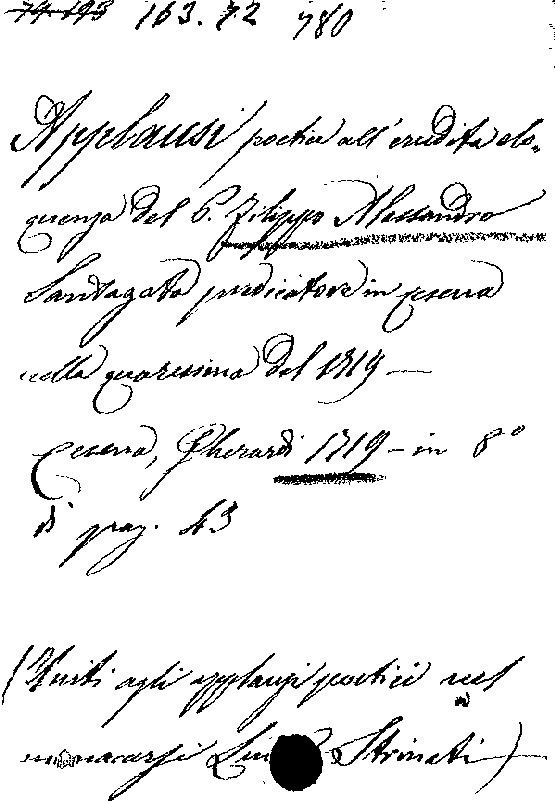 74.193 163.72 780
Applausi poetici all'erudita elo-
quenza del P. Filippo Alessandro
Santagata predicatore in Cesena
nella quaresima del 1719 —
Cesena, Gherardi 1719 - in 8°
di pag. 43
(Uniti agli applausi poetici nel
monacarsi Strinati)